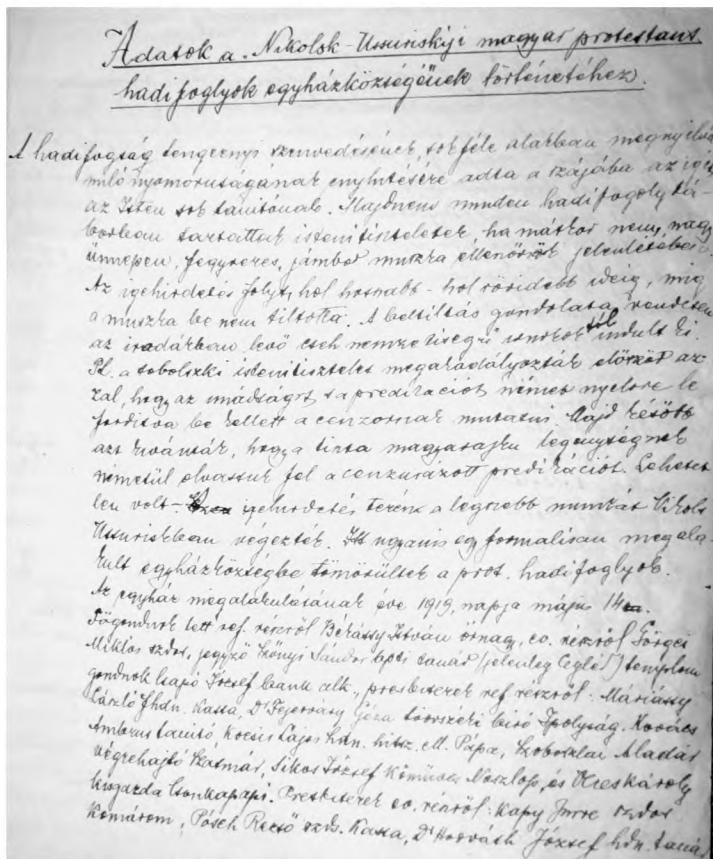 Adatok a Nikolsk-Ussuriskiji magyar protestans
hadifoglyok egyházközségének történetéhez.
A hadifogság tengernyi szenvedésének, sokféle alakban megnyilvá
nuló nyomorúságának enyhítésére adta a szájába az igét
az Isten sok tanítónak. Majdnem minden hadifogoly tá-
borban tartottak istentiszteletet, ha máskor nem, nagy
ünnepen, fegyveres, jámbor muszka ellenőrök jelenlétében.
Az igehirdetés folyt, hol hosszabb - hol rövidebb ideig, míg
a muszka be nem tiltotta. A betiltás gondolata rendesen
az irodákban levő cseh nemzetiségű uraktól indult ki.
Pl. a tobolszki istentiszteletet megakadályozták először az-
zal, hogy az imádságot s a predikációt német nyelvre le
fordítva be kellett a cenzornak mutatni. Majd később
azt kívánták, hogy a tiszta magyarajku legénységnek
németül olvassuk fel a cenzurázott predikációt. Lehetet
len volt - igehirdetés terén a legszebb munkát Nikolsk
Ussuriskban végezték. Itt ugyanis egy formálisan megala-
kult egyházközségbe tömörültek a prot. hadifoglyok.
Az egyház megalakulásának éve 1919, napja május 14
Főgondnok lett ref. részről Békássy István őrnagy, ev. részről Görgei
Miklós szdos, jegyző Szőnyi Sándor tanár (jelenleg Cegléd) templom
gondnok Csapó József bank alk., presbiterek ref részről: Máriássy
László fhdn. Kassa, Dr Fejérváry Géza törvszéki bíró Ipolyság. Kovács
Ambrus tanító, Kocsis Lajos hdn. hitsz. ell. Pápa, Szoboszlai Aladár
végrehajtó Szatmár, Sikos József kőműves Noszlop, és Károly
kisgazda Csonkapapi. Presbiterek ev. részről: Kapy Imre szdos
Komárom, Pósch Rezső szds. Kassa, Dr Horváth József hdn. taná